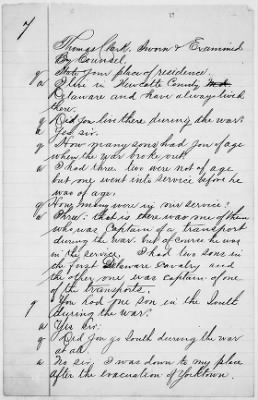 7
Thomas Clark. Sworn & Examined
By Counsel.
q State your place of residence.
a I live in Newcastle County Md.
Delaware and have always lived
there.
q Did you live there during the war?
a Yes sir.
q How many sons had you of age
when the war broke out?
a I had three two were not of age
but one went into service before he
was of age.
q How many were in our service?
a Three: that is there was one of them
who was Captain of a transport
during the war. but of course he was
in the service. I had two sons in
the first Delaware Cavalry and
the other one was Captain of one
of the transports.
q You had one son in the South
during the war?
a Yes sir:
q Did you go South during the war
at all.
a Yes sir, I was down to my place
after the evacuation of Yorktown.